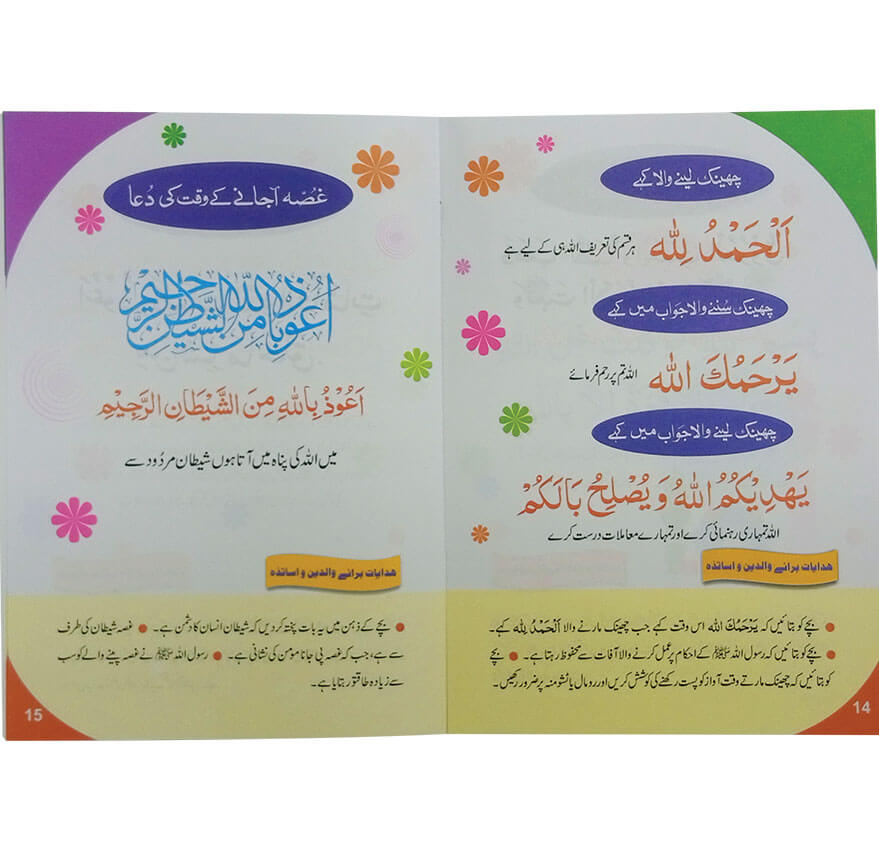 چھینک لینے والا کہے
اَلْحَمْدُ لِلّٰه ہر قسم کی تعریف اللہ ہی کے لیے ہے
چھینک سُننے والا جَواب میں کہے
يَرْحَمُكَ اللّٰه اللہ تم پر رحم فرمائے
چھینک لینے والا جَواب میں کہے
يَهْدِيْكُمُ اللّٰهُ وَيُصْلِحُ بَالَكُمْ
اللہ تمہاری رہنمائی کرے اور تمہارے معاملات درست کرے
هدایات برائے والدین و اساتذه
● بچے کو بتائیں کہ يَرْحَمُكَ اللّٰه اس وقت کہے جب چھینک مارنے والا اَلْحَمْدُ لِلّٰه کہے۔
● بچے کو بتائیں کہ رسول اللہ ﷺ کے احکام پر عمل کرنے والا آفات سے محفوظ رہتا ہے۔ ● بچے
کو بتائیں کہ چھینک مارتے وقت آواز کو پست رکھنے کی کوشش کریں اور رومال یا ٹشو منہ پر ضرور رکھیں۔
14
غصّہ آجانے کے وقت کی دُعا
اعوذ بالله من الشيطن الرجيم
اَعُوْذُ بِاللّٰهِ مِنَ الشَّيْطَانِ الرَّجِيْمِ
میں اللہ کی پناہ میں آتا ہوں شیطان مردُود سے
هدایات برائے والدین و اساتذه
● بچے کے ذہن میں یہ بات پختہ کر دیں کہ شیطان انسان کا دشمن ہے۔ ● غصہ شیطان کی طرف
سے ہے، جب کہ غصہ پی جانا مؤمن کی نشانی ہے۔ ● رسول اللہ ﷺ نے غصہ پینے والے کو سب
سے زیادہ طاقتور بتایا ہے۔
15